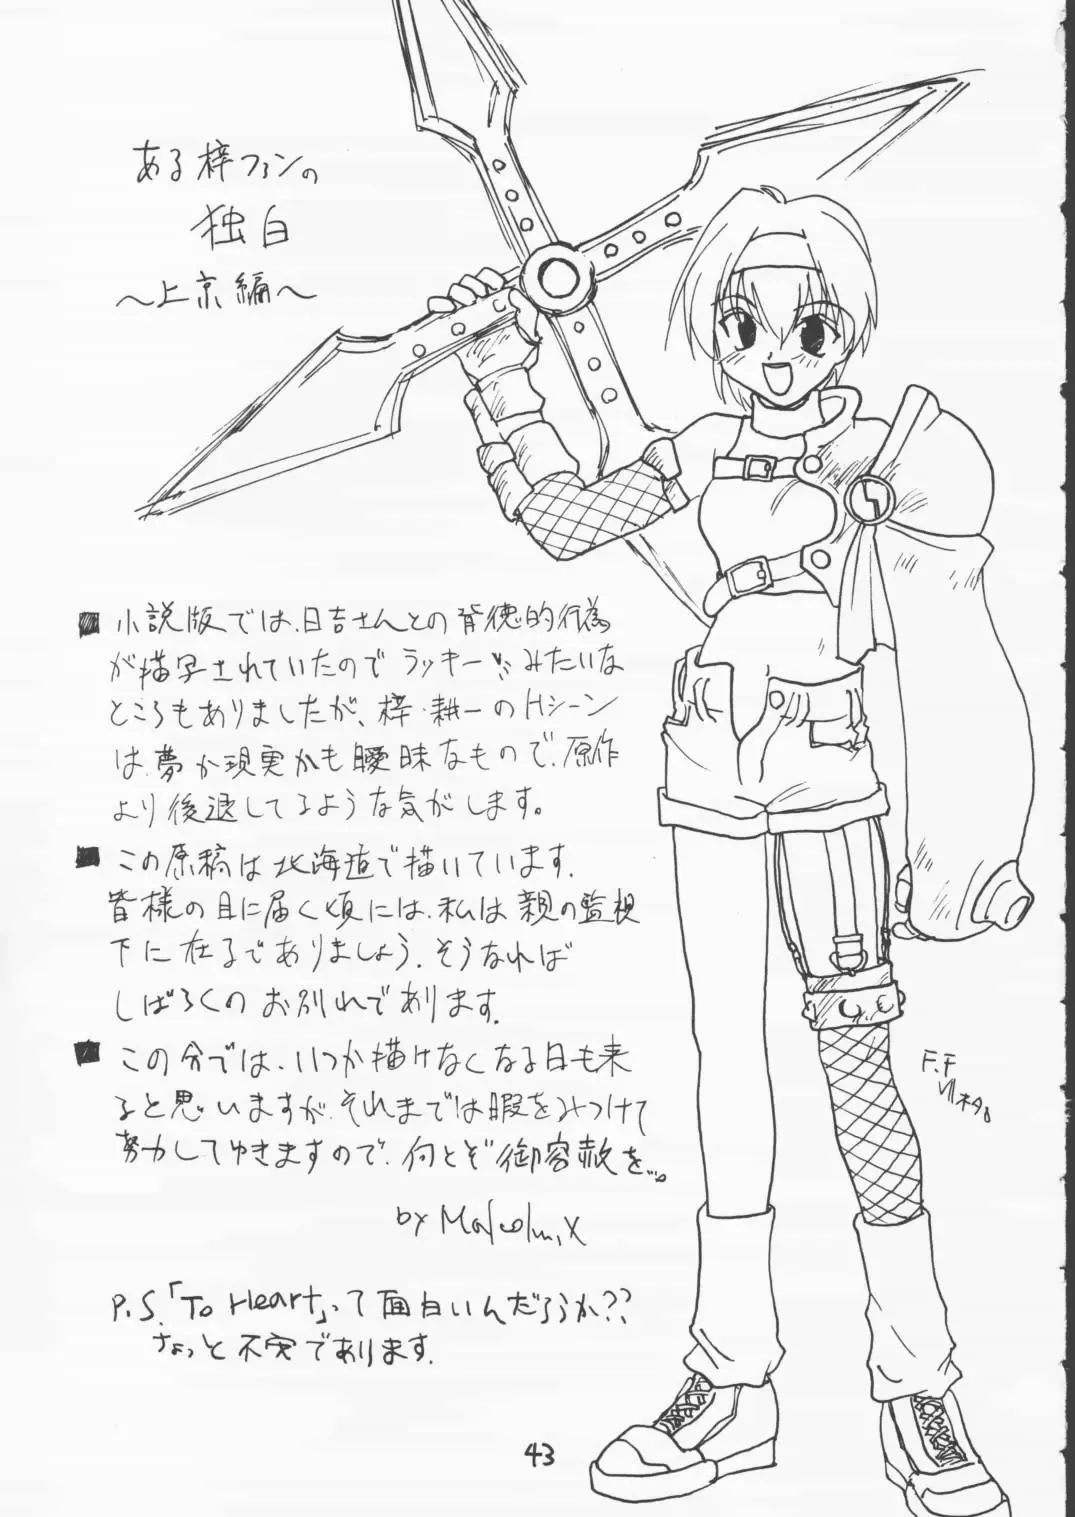 ある梓ファンの
独白
〜上京編〜
■小説版では、日吉さんとの背徳的行為
が描写されていたのでラッキー みたいな
ところもありましたが、梓・耕一のHシーン
は、夢か現実かも曖昧なもので、原作
より後退してるような気がします。
■この原稿は北海道で描いています。
皆様の目に届く頃には、私は親の監視
下に在るでありましょう。そうなれば
しばらくのお別れであります。
■この分では、いつか描けなくなる日も来
ると思いますが、それまでは暇をみつけて
努力してゆきますので、何とぞ御容赦を…。
by Malcolm.X
P.S.「To Heart」って面白いんだろうか??
ちょっと不安であります。
F.F
43